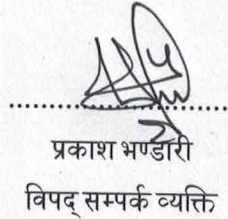 प्रकाश भण्डारी
विपद् सम्पर्क व्यक्ति